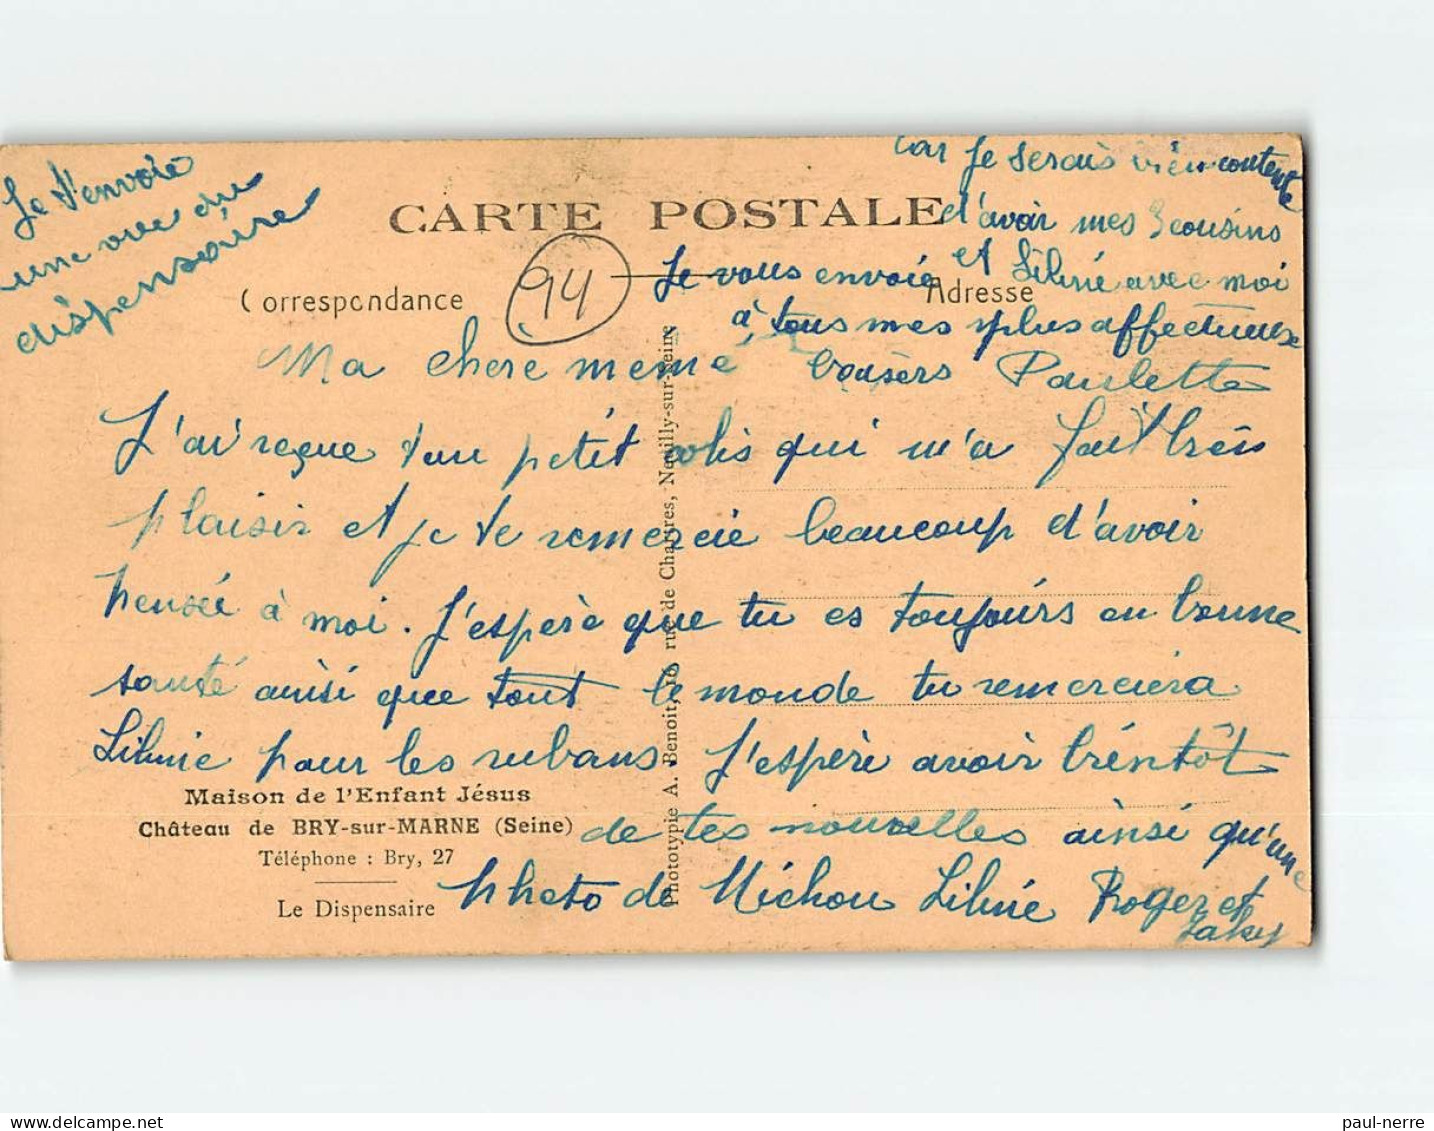 Je t'envoie
une vue du
dispensaire
CARTE POSTALE
Correspondance
94
Adresse
Ma chere memé
J'ai reçue ton petit colis qui m'a fait bien
plaisir et je te remercie beaucoup d'avoir
pensée à moi. J'espère que tu es toujours en bonne
santé ainsi que tout le monde tu remerciera
Lilinie pour les rubans. J'espère avoir biéntôt
de tes nouvelles ainsi qu'une
photo de Michou Liliné Roger et
Jaky
car je serais bien contente
d'avoir mes 3 cousins
et Liliné avec moi
Je vous envoie
à tous mes plus affectueuse
baisers Paulette
Maison de l'Enfant Jésus
Château de BRY-sur-MARNE (Seine)
Téléphone : Bry, 27
Le Dispensaire
Phototypie A. Benoit, rue de Chartres, Neuilly-sur-Seine
paul-nerre